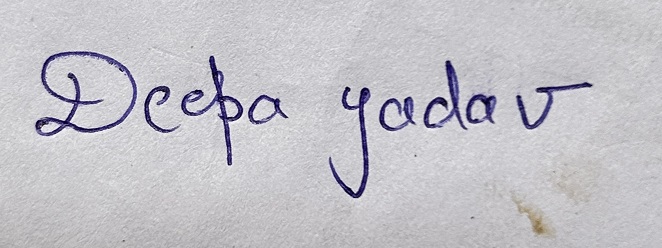 Deepa yadav